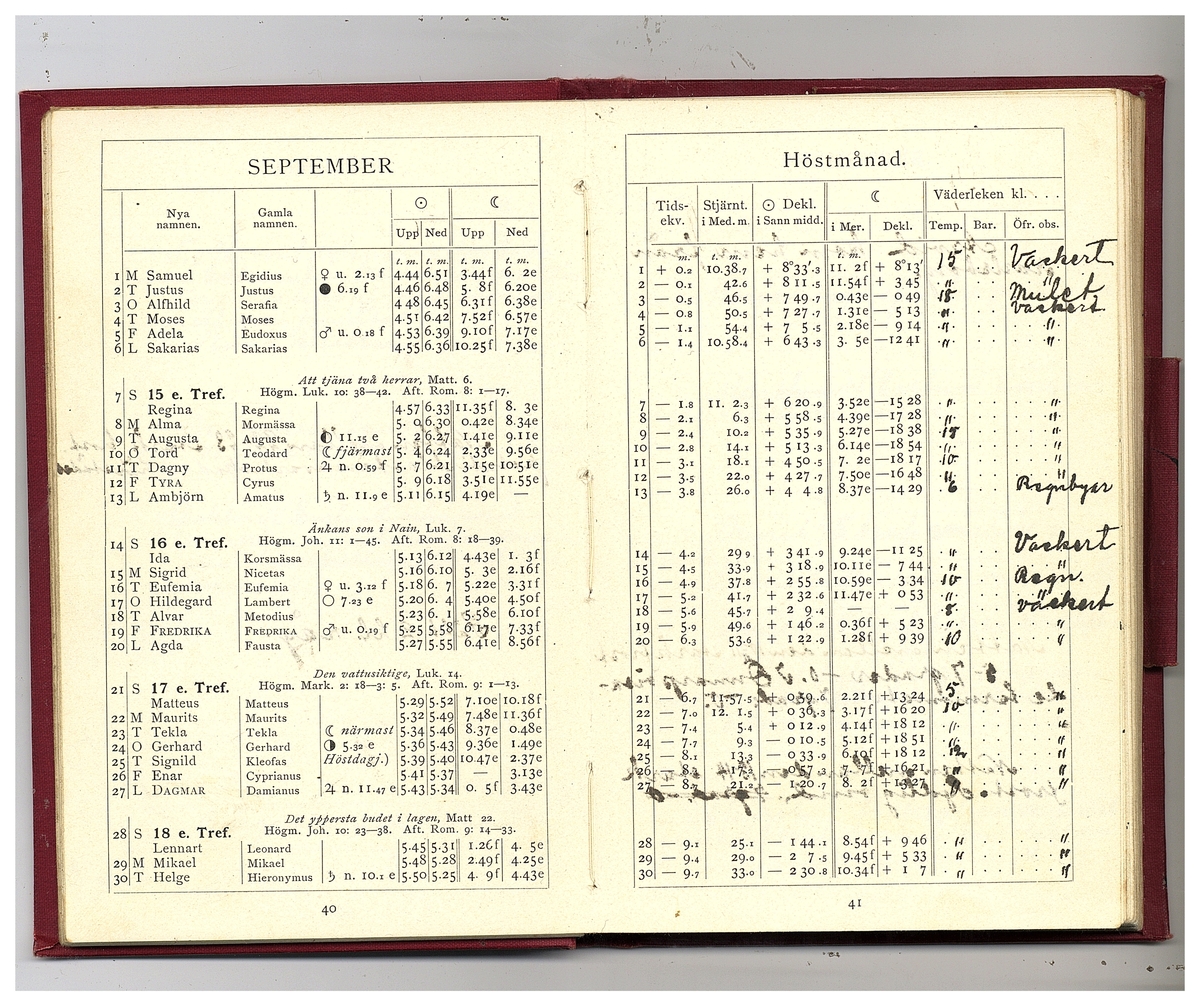 SEPTEMBER
Nya namnen. Gamla namnen. ☉ ☾
Upp Ned Upp Ned
t. m. t. m. t. m. t. m.
1 M Samuel Egidius ♀ u. 2.13 f 4.44 6.51 3.44f 6. 2e
2 T Justus Justus ● 6.19 f 4.46 6.48 5. 8f 6.20e
3 O Alfhild Serafia 4 48 6.45 6.31f 6.38e
4 T Moses Moses 4.51 6.42 7.52f 6.57e
5 F Adela Eudoxus ♂ u. 0.18 f 4.53 6.39 9.10f 7.17e
6 L Sakarias Sakarias 4.55 6.36 10.25f 7.38e
Att tjäna två herrar, Matt. 6.
7 S 15 e. Tref. Högm. Luk. 10: 38—42. Aft. Rom. 8: 1—17.
Regina Regina 4.57 6.33 11.35f 8. 3e
8 M Alma Mormässa 5. 0 6.30 0.42e 8.34e
9 T Augusta Augusta ◐ 11.15 e 5. 2 6.27 1.41e 9.11e
10 O Tord Teodard ☾ fjärmast 5. 4 6.24 2.33e 9.56e
11 T Dagny Protus ♃ n. 0.59 f 5. 7 6.21 3.15e 10.51e
12 F TYRA Cyrus 5. 9 6.18 3.51e 11.55e
13 L Ambjörn Amatus ♄ n. 11.9 e 5.11 6.15 4.19e —
Änkans son i Nain, Luk. 7.
14 S 16 e. Tref. Högm. Joh. 11: 1—45. Aft. Rom. 8: 18—39.
Ida Korsmässa 5.13 6.12 4.43e 1. 3f
15 M Sigrid Nicetas 5.16 6.10 5. 3e 2.16f
16 T Eufemia Eufemia ♀ u. 3.12 f 5.18 6. 7 5.22e 3.31f
17 O Hildegard Lambert ○ 7.23 e 5.20 6. 4 5.40e 4.50f
18 T Alvar Metodius 5.23 6. 1 5.58e 6.10f
19 F FREDRIKA FREDRIKA ♂ u. 0.19 f 5.25 5.58 6.17e 7.33f
20 L Agda Fausta 5.27 5.55 6.41e 8.56f
Den vattusiktige, Luk. 14.
21 S 17 e. Tref. Högm. Mark. 2: 18—3: 5. Aft. Rom. 9: 1—13.
Matteus Matteus 5.29 5.52 7.10e 10.18f
22 M Maurits Maurits 5.32 5.49 7.48e 11.36f
23 T Tekla Tekla ☾ närmast 5.34 5.46 8.37e 0.48e
24 O Gerhard Gerhard ◑ 5.32 e 5.36 5.43 9.36e 1.49e
25 T Signild Kleofas Höstdagj.) 5.39 5.40 10.47e 2.37e
26 F Enar Cyprianus 5.41 5.37 — 3.13e
27 L DAGMAR Damianus ♃ n. 11.47 e 5.43 5.34 0. 5f 3.43e
Det yppersta budet i lagen, Matt 22.
28 S 18 e. Tref. Högm. Joh. 10: 23—38. Aft. Rom. 9: 14—33.
Lennart Leonard 5.45 5.31 1.26f 4. 5e
29 M Mikael Mikael 5.48 5.28 2.49f 4.25e
30 T Helge Hieronymus ♄ n. 10.1 e 5.50 5.25 4. 9f 4.43e
40
Höstmånad.
Tids-ekv. Stjärnt. i Med. m. ☉ Dekl. i Sann midd. ☾ Väderleken kl. . . .
i Mer. Dekl. Temp. Bar. Öfr. obs.
m. t. m. t. m.
1 + 0.2 10.38.7 + 8°33′.3 11. 2f + 8°13′ 15 Vackert
2 — 0.1 42.6 + 8 11 .5 11.54f + 3 45 " "
3 — 0.5 46.5 + 7 49 .7 0.43e — 0 49 18 Mulet
4 — 0.8 50.5 + 7 27 .7 1.31e — 5 13 " Vackert
5 — 1.1 54.4 + 7 5 .5 2.18e — 9 14 " "
6 — 1.4 10.58.4 + 6 43 .3 3. 5e —12 41 " "
7 — 1.8 11. 2.3 + 6 20 .9 3.52e —15 28 " "
8 — 2.1 6.3 + 5 58 .5 4.39e —17 28 " "
9 — 2.4 10.2 + 5 35 .9 5.27e —18 38 "
10 — 2.8 14.1 + 5 13 .3 6.14e —18 54 " "
11 — 3.1 18.1 + 4 50 .5 7. 2e —18 17 10 "
12 — 3.5 22.0 + 4 27 .7 7.50e —16 48 " "
13 — 3.8 26.0 + 4 4 .8 8.37e —14 29 6 Regnbyar
14 — 4.2 29 9 + 3 41 .9 9.24e —11 25 " Vackert
15 — 4.5 33.9 + 3 18 .9 10.11e — 7 44 " "
16 — 4.9 37.8 + 2 55 .8 10.59e — 3 34 10 Regn.
17 — 5.2 41.7 + 2 32 .6 11.47e + 0 53 " "
18 — 5.6 45.7 + 2 9 .4 — — 8 vackert
19 — 5.9 49.6 + 1 46 .2 0.36f + 5 23 " "
20 — 6.3 53.6 + 1 22 .9 1.28f + 9 39 10 "
21 — 6.7 11.57.5 + 0 59 .6 2.21f +13 24 5 "
22 — 7.0 12. 1.5 + 0 36 .3 3.17f +16 20 10 "
23 — 7.4 5.4 + 0 12 .9 4.14f +18 12 " "
24 — 7.7 9.3 — 0 10 .5 5.12f +18 51 " "
25 — 8.1 13.3 — 0 33 .9 6.10f +18 12 12 "
26 — 8.4 17.2 — 0 57 .3 7. 7f +16 21 " "
27 — 8.7 21.2 — 1 20 .7 8. 2f +13 27 " "
28 — 9.1 25.1 — 1 44 .1 8.54f + 9 46 " "
29 — 9.4 29.0 — 2 7 .5 9.45f + 5 33 " "
30 — 9.7 33.0 — 2 30 .8 10.34f + 1 7 " "
41